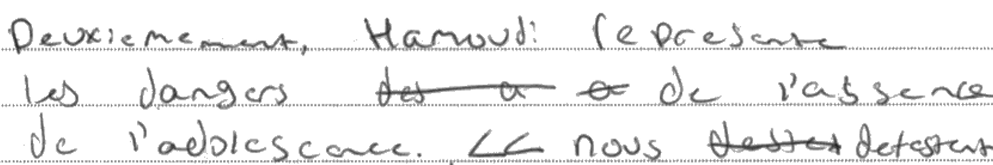 Deuxiemement, Hamoudi represente
les dangers de l'assence
de l'adolescence. << nous detestent